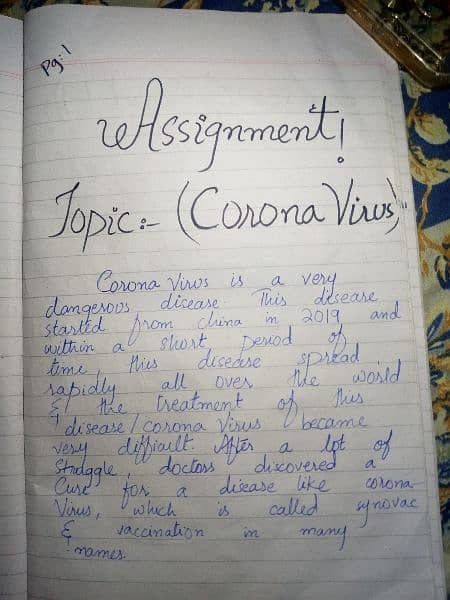 Pg:1
Assignment!
Topic:- (Corona Virus)
Corona Virus is a very
dangerous disease. This disease
started from china in 2019 and
within a short period of
time, this disease spread
rapidly all over the world
& the treatment of this
disease/corona Virus became
very difficult. After a lot of
Struggle, doctors discovered a
Cure for a disease like corona
Virus, which is called synovac
& vaccination in many
names.